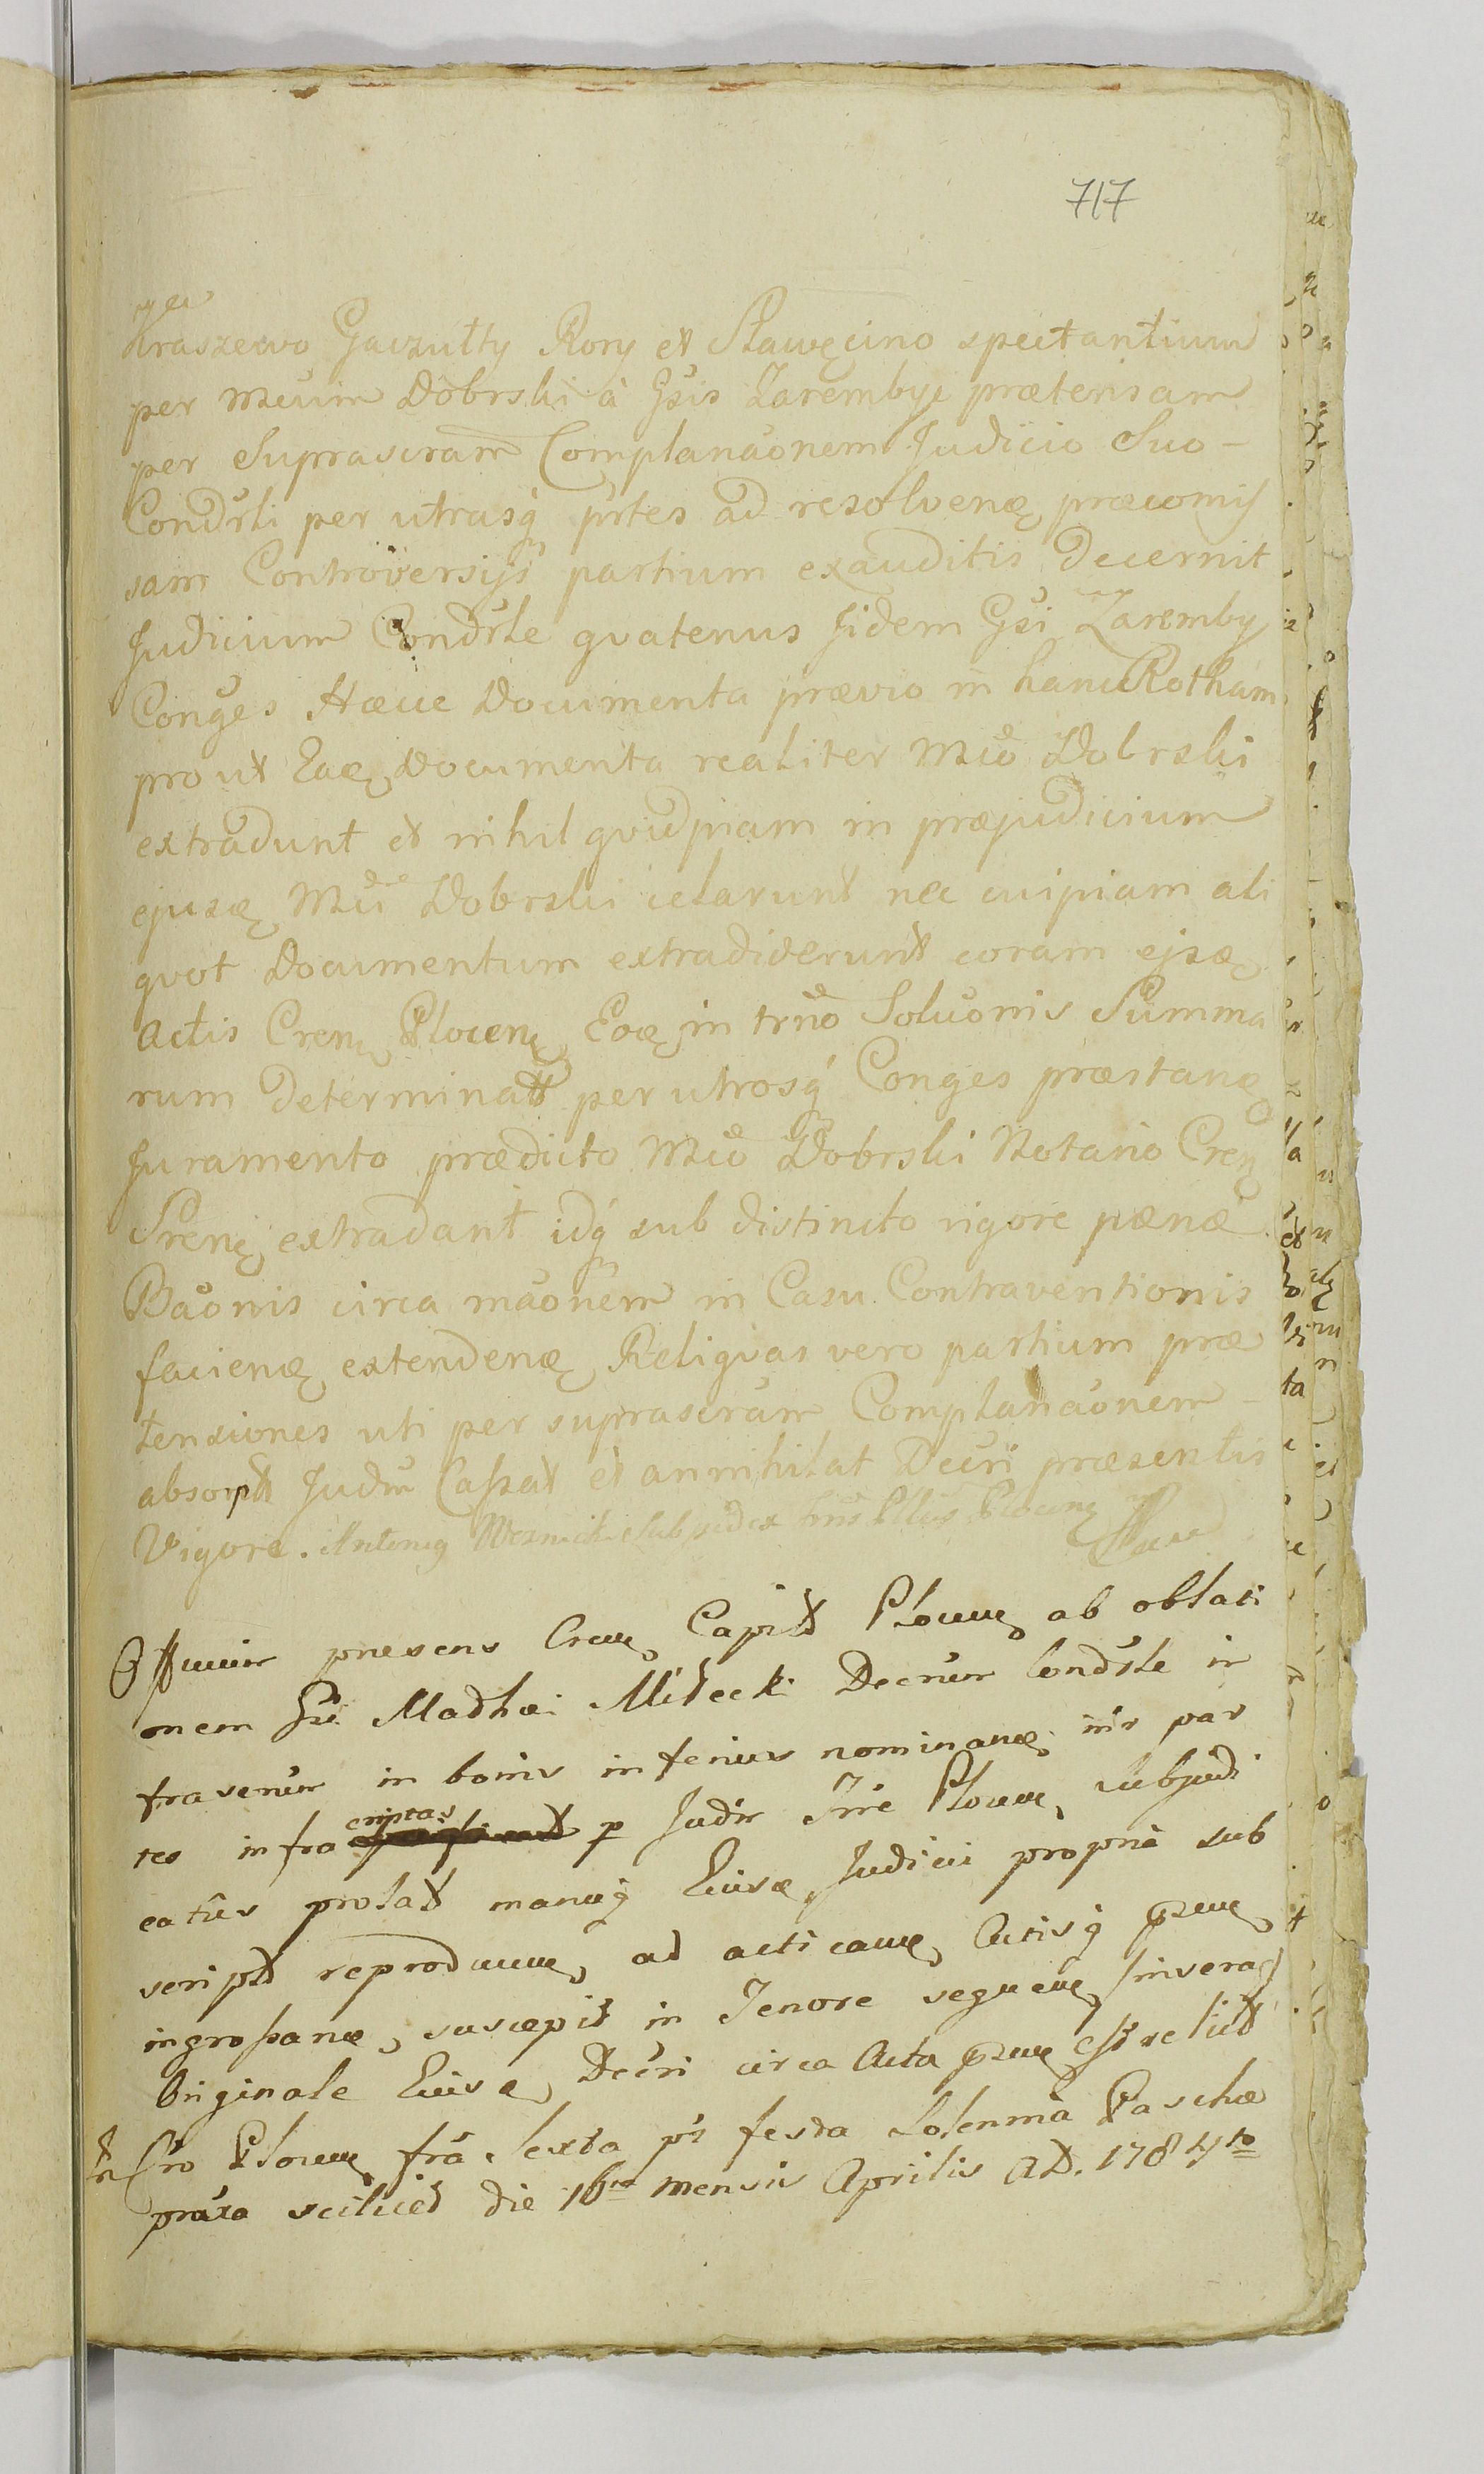 717
Kraszewo Gaczułty Rory et Sławęcino spectantium
per Mcum Dobrski à Gsis Zarembye prætensam
per Suprascram Complanaonem Judicio Suo -
Condrli per utrasq prtes ad resolvenę præcomis
sam Controversijs partium exauditis Decernit
Judicium Condrle qvatenus Jidem Gsi Zaremby
Conges Hæcce Documenta prævio in hanc Rotham
prout Eaę Documenta realiter Mco Dobrski
extradunt et nihil qvidpiam in præjudicium
ejusę Mci Dobrski celarunt nec cuipiam ali
qvot Documentum extradiderunt coram ejsę
Actis Crenę Plocenę Eoę in trno Soluonis Summa
rum determinatt per utrosq Conges præstanę
Juramento prædicto Mco Dobrski Notario Crenę
Srenę extradant idq sub distincto rigore pænæ
Baonis circa maonem in Casu Contraventionis
facienę extendenę Reliqvas vero partium præ
tensiones uti per suprascram Complanaonem -
absorpt Judm Cassat et annihilat Decri præsentis
Vigore. Antonig Mesnicki Subjudex
Offcium præsens Crenę Capit Plocenę ab oblati
onem Gsi Mathæi Miłecki Decrum Condrle in
frascrum in bonis inferius nominanę inr par
tes infra criptas p Judm Trre Plocenę Subjudi
catus prolat manuq Eiusę Judicii propria sub
script reproducenę ad acticanę Actisq psenę
ingrossanę, suscepit in Tenore sequenę
Originale Eiusę Decri circa Acta psenę est relict
Plocenę fria Sexta pst festa Solennia Paschæ
prxia scilicet die 16ta mensis Aprilis AD. 1784to